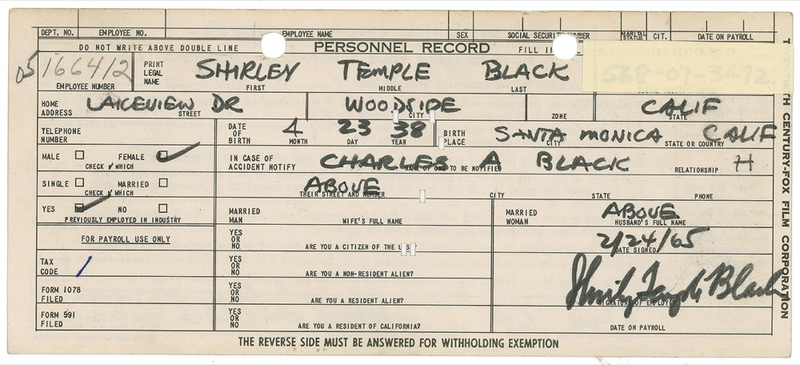 DEPT. NO. EMPLOYEE NO. EMPLOYEE NAME SEX SOCIAL SECURITY NUMBER MARITAL STATUS CIT. DATE ON PAYROLL
DO NOT WRITE ABOVE DOUBLE LINE PERSONNEL RECORD FILL IN
05 166412 PRINT LEGAL NAME SHIRLEY TEMPLE BLACK
EMPLOYEE NUMBER FIRST MIDDLE LAST
HOME ADDRESS LAKEVIEW DR WOODSIDE CALIF
STREET CITY ZONE STATE
TELEPHONE NUMBER DATE OF BIRTH 4 23 38 BIRTH PLACE SANTA MONICA CALIF
MONTH DAY YEAR CITY STATE OR COUNTRY
MALE FEMALE ✓ IN CASE OF ACCIDENT NOTIFY CHARLES A BLACK H
CHECK ✓ WHICH NAME OF ONE TO BE NOTIFIED RELATIONSHIP
SINGLE MARRIED ABOVE
CHECK ✓ WHICH THEIR STREET AND NUMBER CITY STATE PHONE
YES ✓ NO MARRIED MAN MARRIED WOMAN ABOVE
PREVIOUSLY EMPLOYED IN INDUSTRY WIFE'S FULL NAME HUSBAND'S FULL NAME
FOR PAYROLL USE ONLY YES OR NO ARE YOU A CITIZEN OF THE U.S.? 2/24/65
DATE SIGNED
TAX CODE / YES OR NO ARE YOU A NON-RESIDENT ALIEN? Shirley Temple Black
FORM 1078 FILED YES OR NO ARE YOU A RESIDENT ALIEN? SIGNATURE OF EMPLOYEE
FORM 591 FILED YES OR NO ARE YOU A RESIDENT OF CALIFORNIA? DATE ON PAYROLL
THE REVERSE SIDE MUST BE ANSWERED FOR WITHHOLDING EXEMPTION
CENTURY-FOX FILM CORPORATION